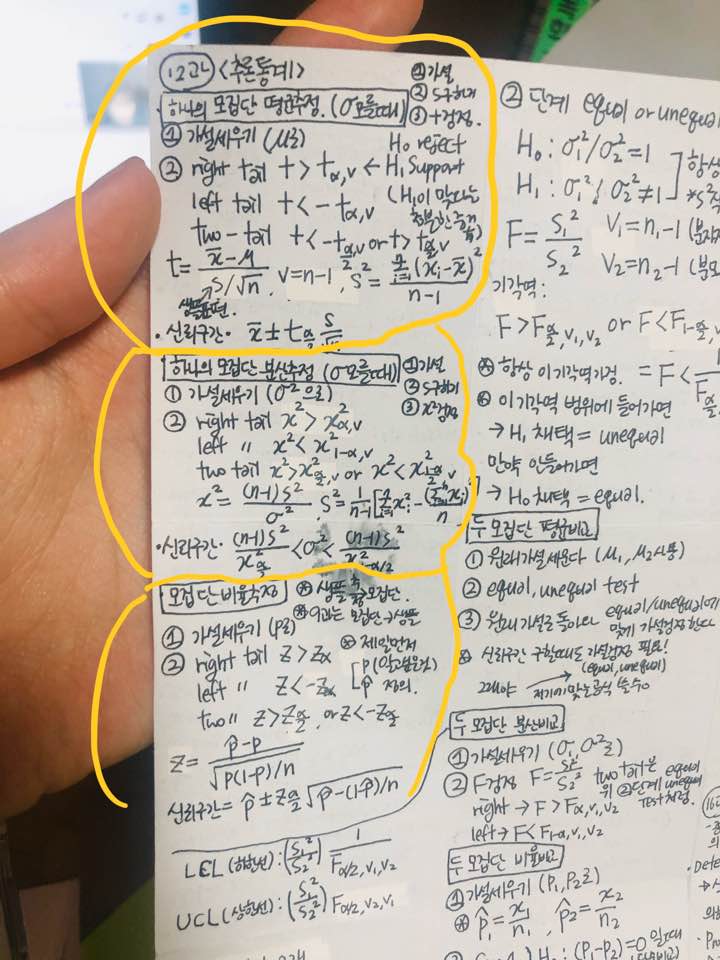 12과 <추론통계>
하나의 모집단 평균추정. (σ모를때)
① 가설
② S구하기
③ t검정.
① 가설세우기 (μ로)
H₀ reject
② right tail t > tα,v ← H₁ Support
left tail t < -tα,v (H₁이 맞다는
충분한 증거
two-tail t < -tα/2,v or t > tα/2,v
t = (x̄-μ)/(S/√n) v=n-1, S² = Σᵢ₌₁ⁿ(xᵢ-x̄)²/(n-1)
·신뢰구간· x̄ ± tα/2 S/√n
하나의 모집단 분산추정 (σ모를때)
① 가설
② S구하기
③ x²검정
① 가설세우기 (σ²으로)
② right tail x² > x²α,v
left 〃 x² < x²1-α,v
two tail x² > x²α/2,v or x² < x²1-α/2,v
x² = (n-1)S²/σ² . S² = 1/(n-1) [Σᵢ₌₁ⁿxᵢ² - (Σᵢ₌₁ⁿxᵢ)²/n]
·신뢰구간· (n-1)S²/x²α/2 < σ² < (n-1)S²/x²1-α/2
모집단비율추정
① 가설세우기 (p로)
⊛ 제일먼저
② right tail z > zα
left 〃 z < -zα
p̂ 정의.
two 〃 z > zα/2, or z < -zα/2
z = (p̂-p)/√(p(1-p)/n)
신뢰구간 = p̂ ± zα/2 √(p̂-(1-p̂)/n)
LCL (하한선) : (S₁²/S₂²) 1/Fα/2,v₁,v₂
UCL (상한선) : (S₁²/S₂²) Fα/2,v₂,v₁
② 단계 equal or unequal
H₀ : σ₁²/σ₂² = 1
H₁ : σ₁²/σ₂² ≠ 1
항상
F = S₁²/S₂² V₁ = n₁-1 (분자
V₂ = n₂-1 (분모
기각역 :
F > Fα/2,v₁,v₂ or F < F1-α/2,v
⊛ 항상 이 기각역가정. = F < 1/Fα/2
⊛ 이 기각역 범위에 들어가면
→ H₁ 채택 = unequal
만약 안들어가면
→ H₀ 채택 = equal.
두 모집단 평균비교
① 원래가설세운다 (μ₁, μ₂사용)
② equal, unequal test
③ 원래 가설로 돌아와 equal/unequal에
맞게 가설검정한다
⊛ 신뢰구간 구할때도 가설검정 필요!
(equal, unequal)
그래야 저기에맞는공식 쓸수O
두 모집단 분산비교
① 가설세우기 (σ₁²σ₂²로)
② F검정 F = S₁²/S₂² two tail은
위 ②단계 equal unequal
test처럼.
right → F > Fα,v₁,v₂
left → F < F1-α,v₁,v₂
두 모집단 비율비교
① 가설세우기 (P₁, P₂로)
⊛ p̂₁ = x₁/n₁, p̂₂ = x₂/n₂
H₀ : (P₁-P₂) = 0 일때